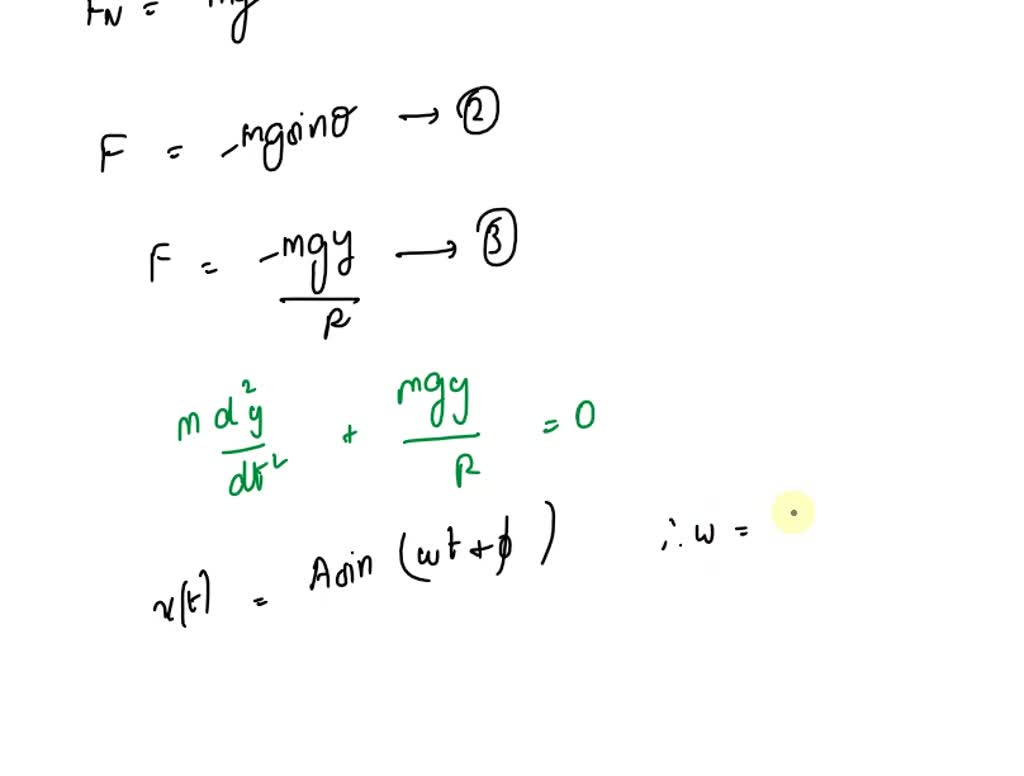 F_N = mg
F = -mg sinθ → ②
F = -mgy/R → ③
m d²y/dt² + mgy/R = 0
x(t) = A sin (ωt + ϕ) ∴ ω =